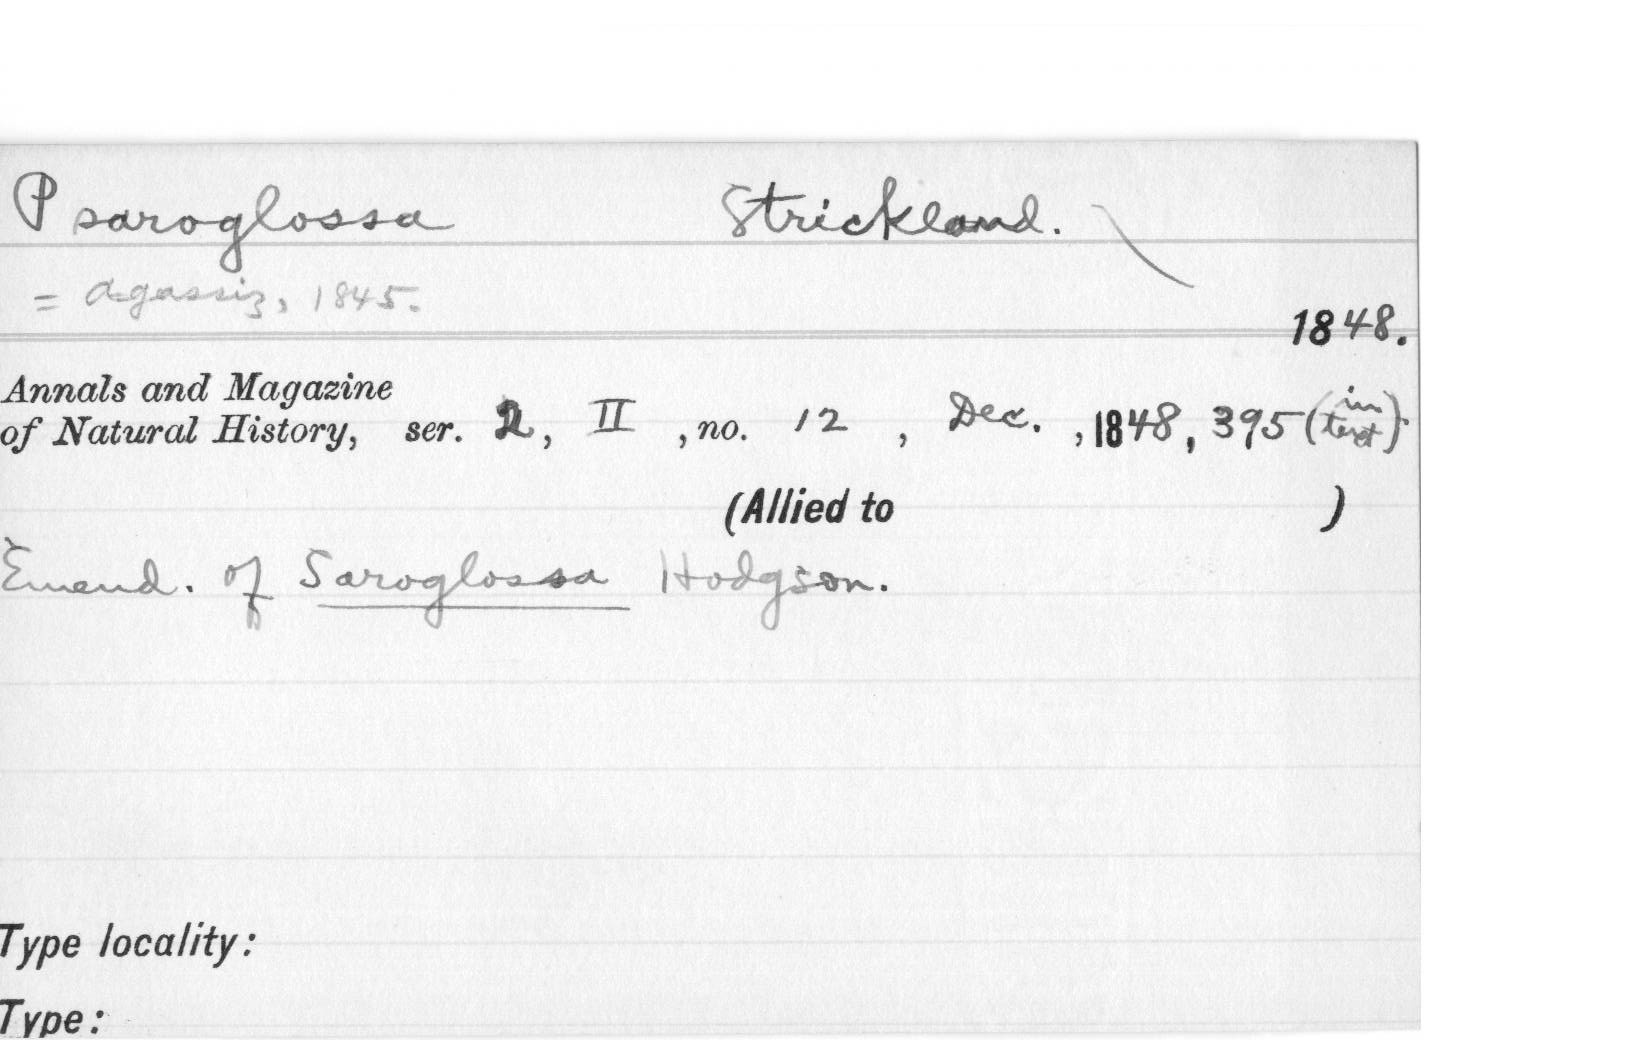 Psaroglossa Strickland.
= Agassiz, 1845.
1848.
Annals and Magazine
of Natural History, ser. 2, II, no. 12, Dec., 1848, 395 (in text).
(Allied to )
Emend. of Saroglossa Hodgson.
Type locality:
Type: